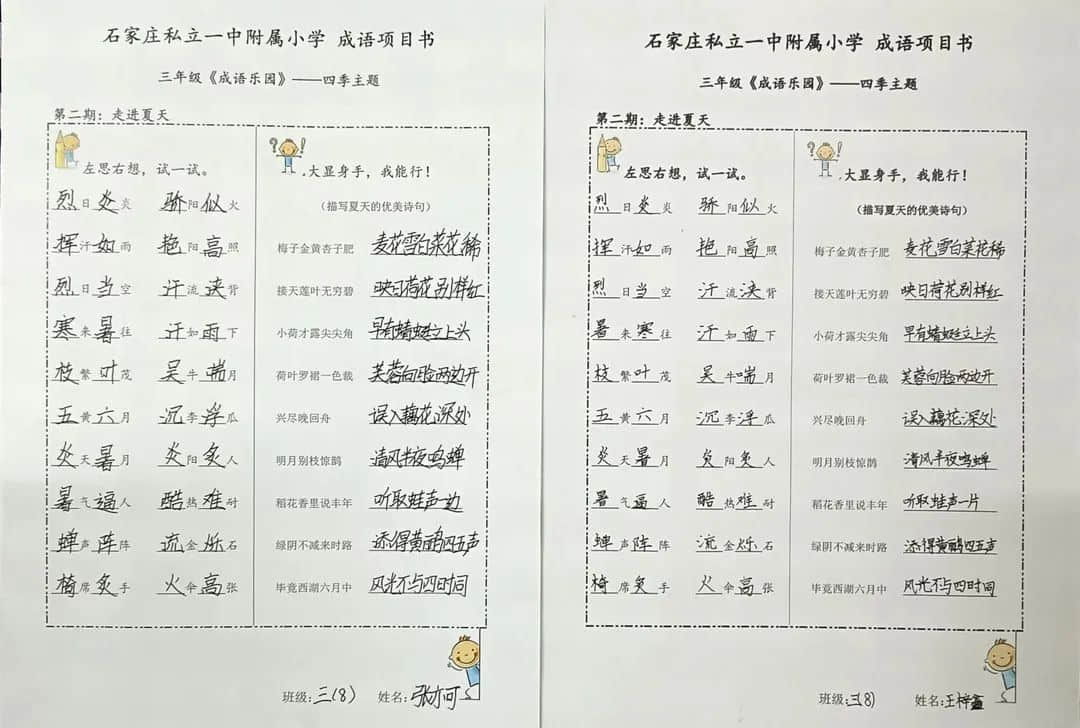 石家庄私立一中附属小学 成语项目书
三年级《成语乐园》——四季主题
第二期：走进夏天
左思右想，试一试。
烈日炎炎 骄阳似火
挥汗如雨 艳阳高照
烈日当空 汗流浃背
寒来暑往 汗如雨下
枝繁叶茂 吴牛喘月
五黄六月 沉李浮瓜
炎天暑月 炎阳炙人
暑气逼人 酷热难耐
蝉声阵阵 流金烁石
椅席炙手 火伞高张
大显身手，我能行！
（描写夏天的优美诗句）
梅子金黄杏子肥 麦花雪白菜花稀
接天莲叶无穷碧 映日荷花别样红
小荷才露尖尖角 早有蜻蜓立上头
荷叶罗裙一色裁 芙蓉向脸两边开
兴尽晚回舟 误入藕花深处
明月别枝惊鹊 清风半夜鸣蝉
稻花香里说丰年 听取蛙声一边
绿阴不减来时路 添得黄鹂四五声
毕竟西湖六月中 风光不与四时同
班级：三(8) 姓名：张亦可
石家庄私立一中附属小学 成语项目书
三年级《成语乐园》——四季主题
第二期：走进夏天
左思右想，试一试。
烈日炎炎 骄阳似火
挥汗如雨 艳阳高照
烈日当空 汗流浃背
暑来寒往 汗如雨下
枝繁叶茂 吴牛喘月
五黄六月 沉李浮瓜
炎天暑月 炙阳炙人
暑气逼人 酷热难耐
蝉声阵阵 流金烁石
椅席炙手 火伞高张
大显身手，我能行！
（描写夏天的优美诗句）
梅子金黄杏子肥 麦花雪白菜花稀
接天莲叶无穷碧 映日荷花别样红
小荷才露尖尖角 早有蜻蜓立上头
荷叶罗裙一色裁 芙蓉向脸两边开
兴尽晚回舟 误入藕花深处
明月别枝惊鹊 清风半夜鸣蝉
稻花香里说丰年 听取蛙声一片
绿阴不减来时路 添得黄鹂四五声
毕竟西湖六月中 风光不与四时同
班级：三(8) 姓名：王梓鑫